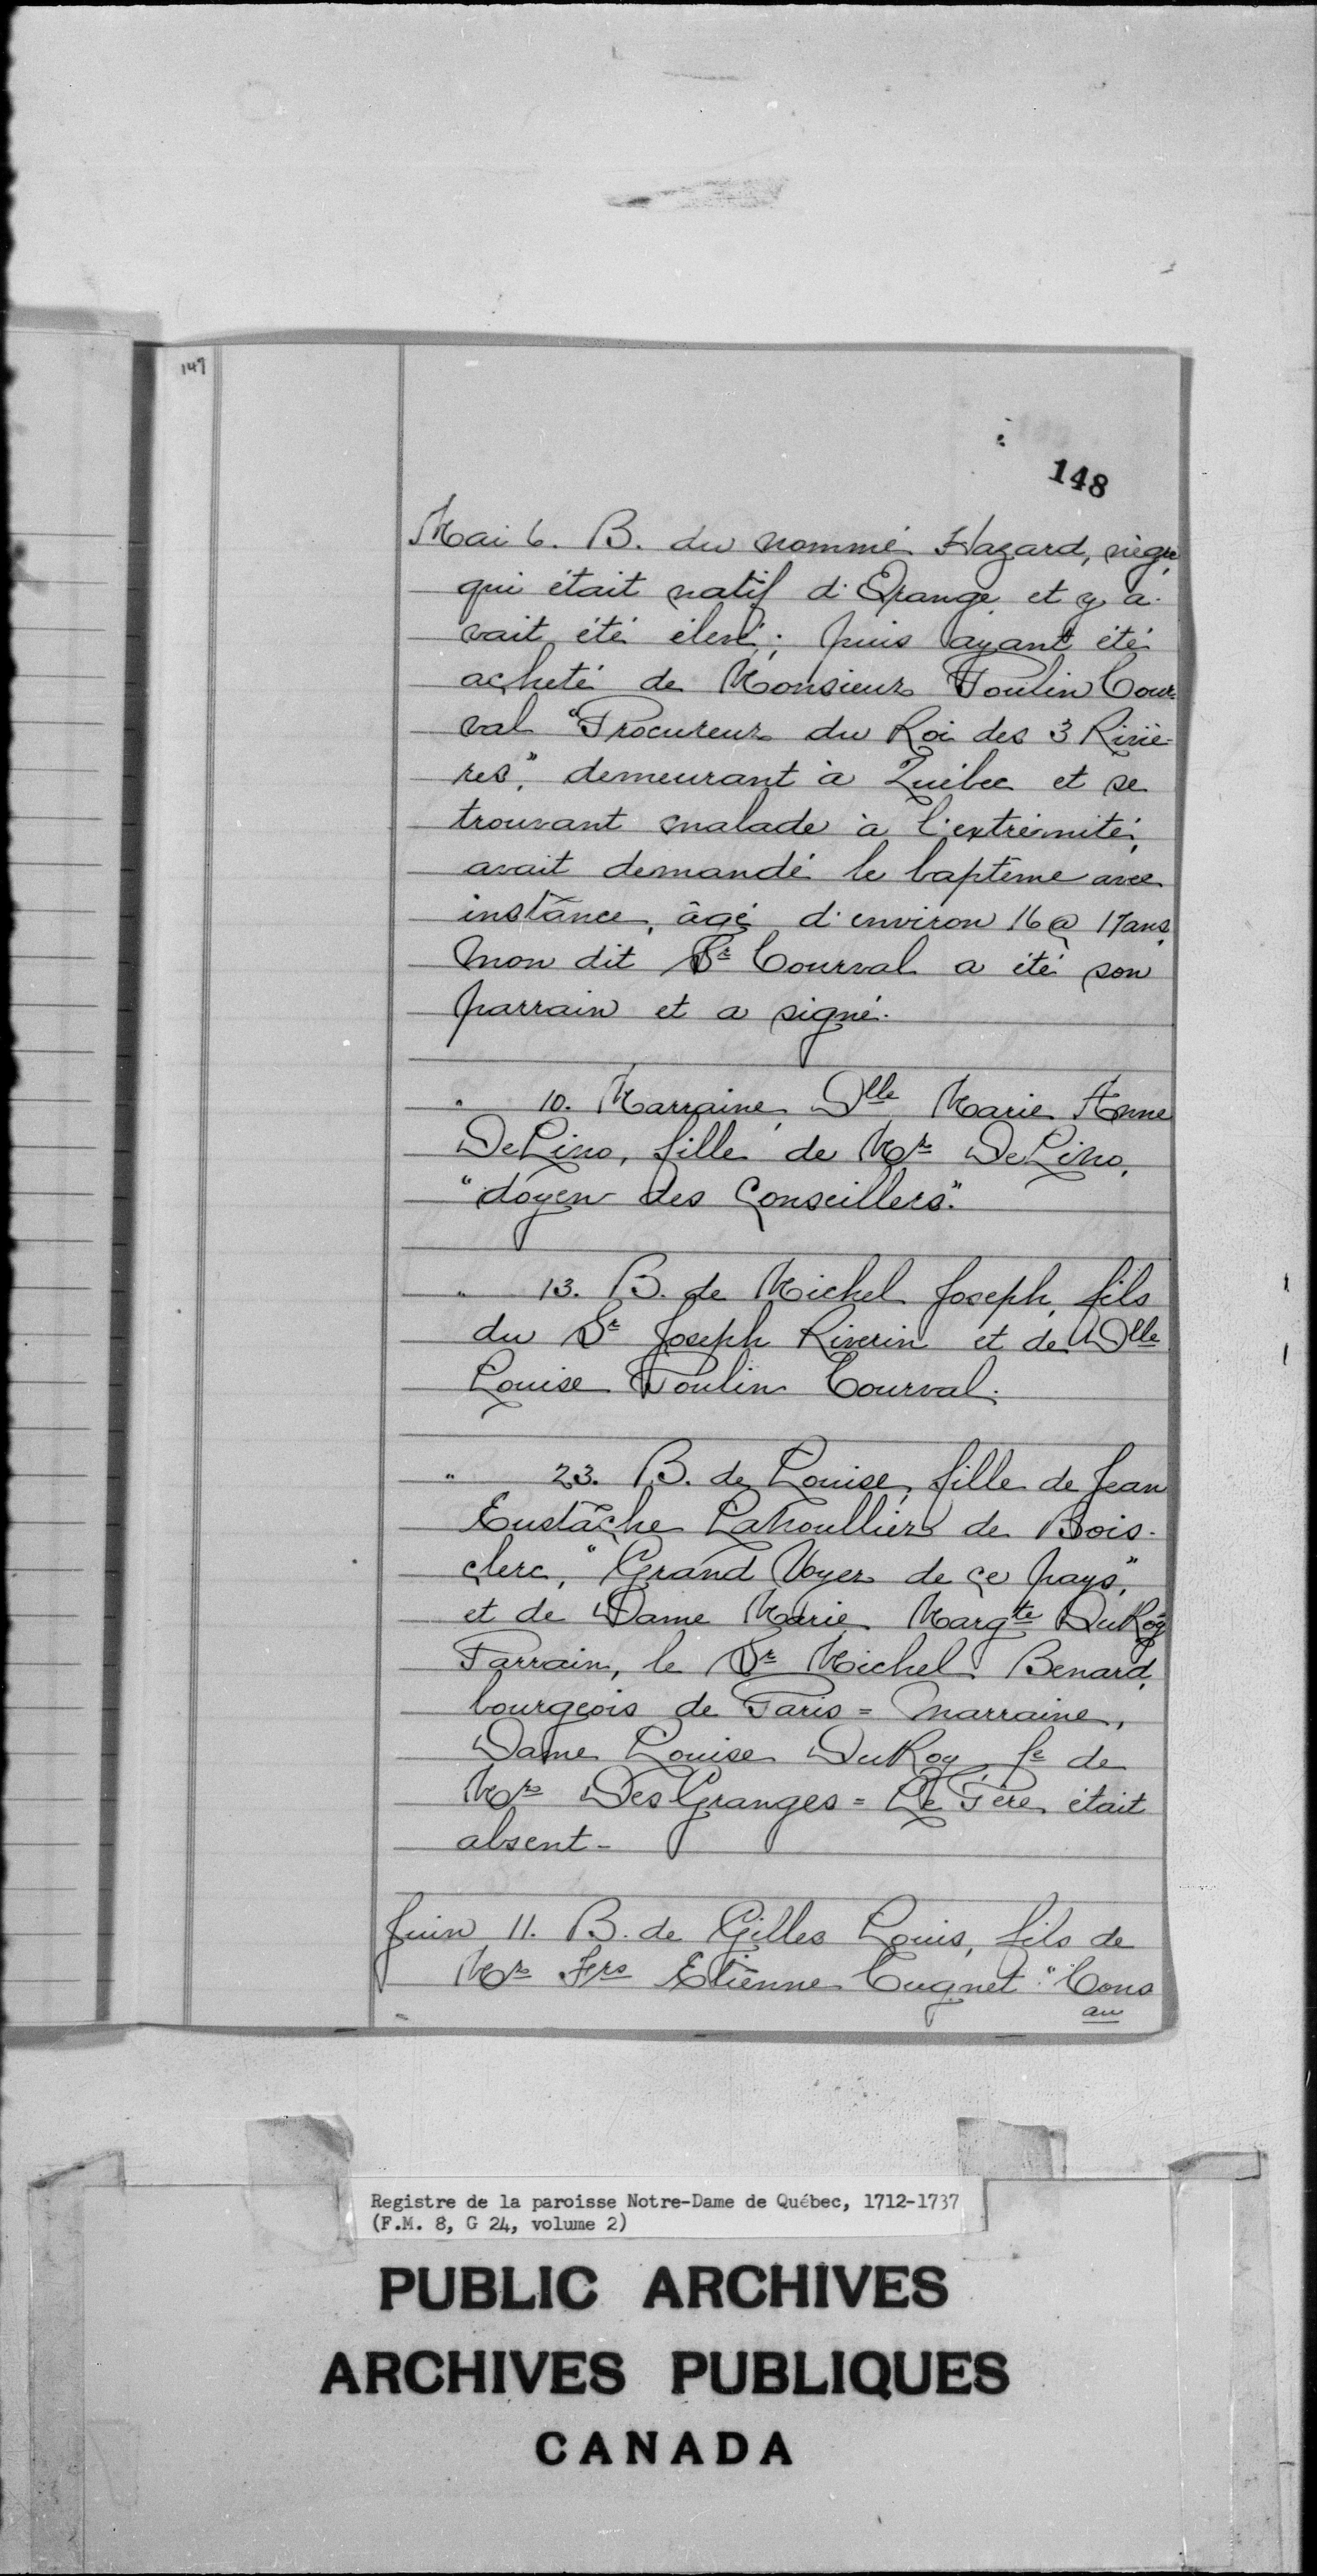 147
148
Mai 6. B. du nommé Hazard, nègre
qui était natif d'Orange et y a-
vait été élevé; puis ayant été
acheté de Monsieur Poulin Cour-
val "Procureur du Roi des 3 Riviè-
res", demeurant à Québec et se
trouvant malade à l'extrémité,
avait demandé le baptême avec
instance, âgé d'environ 16 @ 17 ans,
mon dit Sr Courval a été son
parrain et a signé.
" 10. Marraine, Dlle Marie Anne
DeLino, fille de Mr DeLino,
"doyen des Conseillers".
" 13. B. de Michel Joseph, fils
du Sr Joseph Riverin et de Dlle
Louise Poulin Courval.
" 23. B. de Louise, fille de Jean
Eustache Lanoullier de Bois-
clerc, "Grand Voyer de ce pays",
et de Dame Marie Margte DuRoy
Parrain, le Sr Michel Benard,
bourgeois de Paris = Marraine,
Dame Louise DuRoy fe de
Mr DesGranges = Le Père était
absent -
Juin 11. B. de Gilles Louis, fils de
Mr Frs Etienne Cugnet "Cons
au
Registre de la paroisse Notre-Dame de Québec, 1712-1737
(F.M. 8, G 24, volume 2)
PUBLIC ARCHIVES
ARCHIVES PUBLIQUES
CANADA